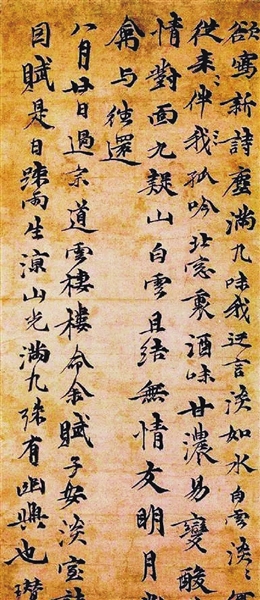 欲寫新詩塵滿几味我迂言淡如水白雲淡〻
從来〻伴我孤吟北窓裏酒味甘濃易變酸
情對面九疑山白雲且結無情友明月
禽与徃還
八月廿日過宗道雲棲樓命余賦子安淡室詩
因賦是日踈雨生涼山光滿几殊有幽興也瓚